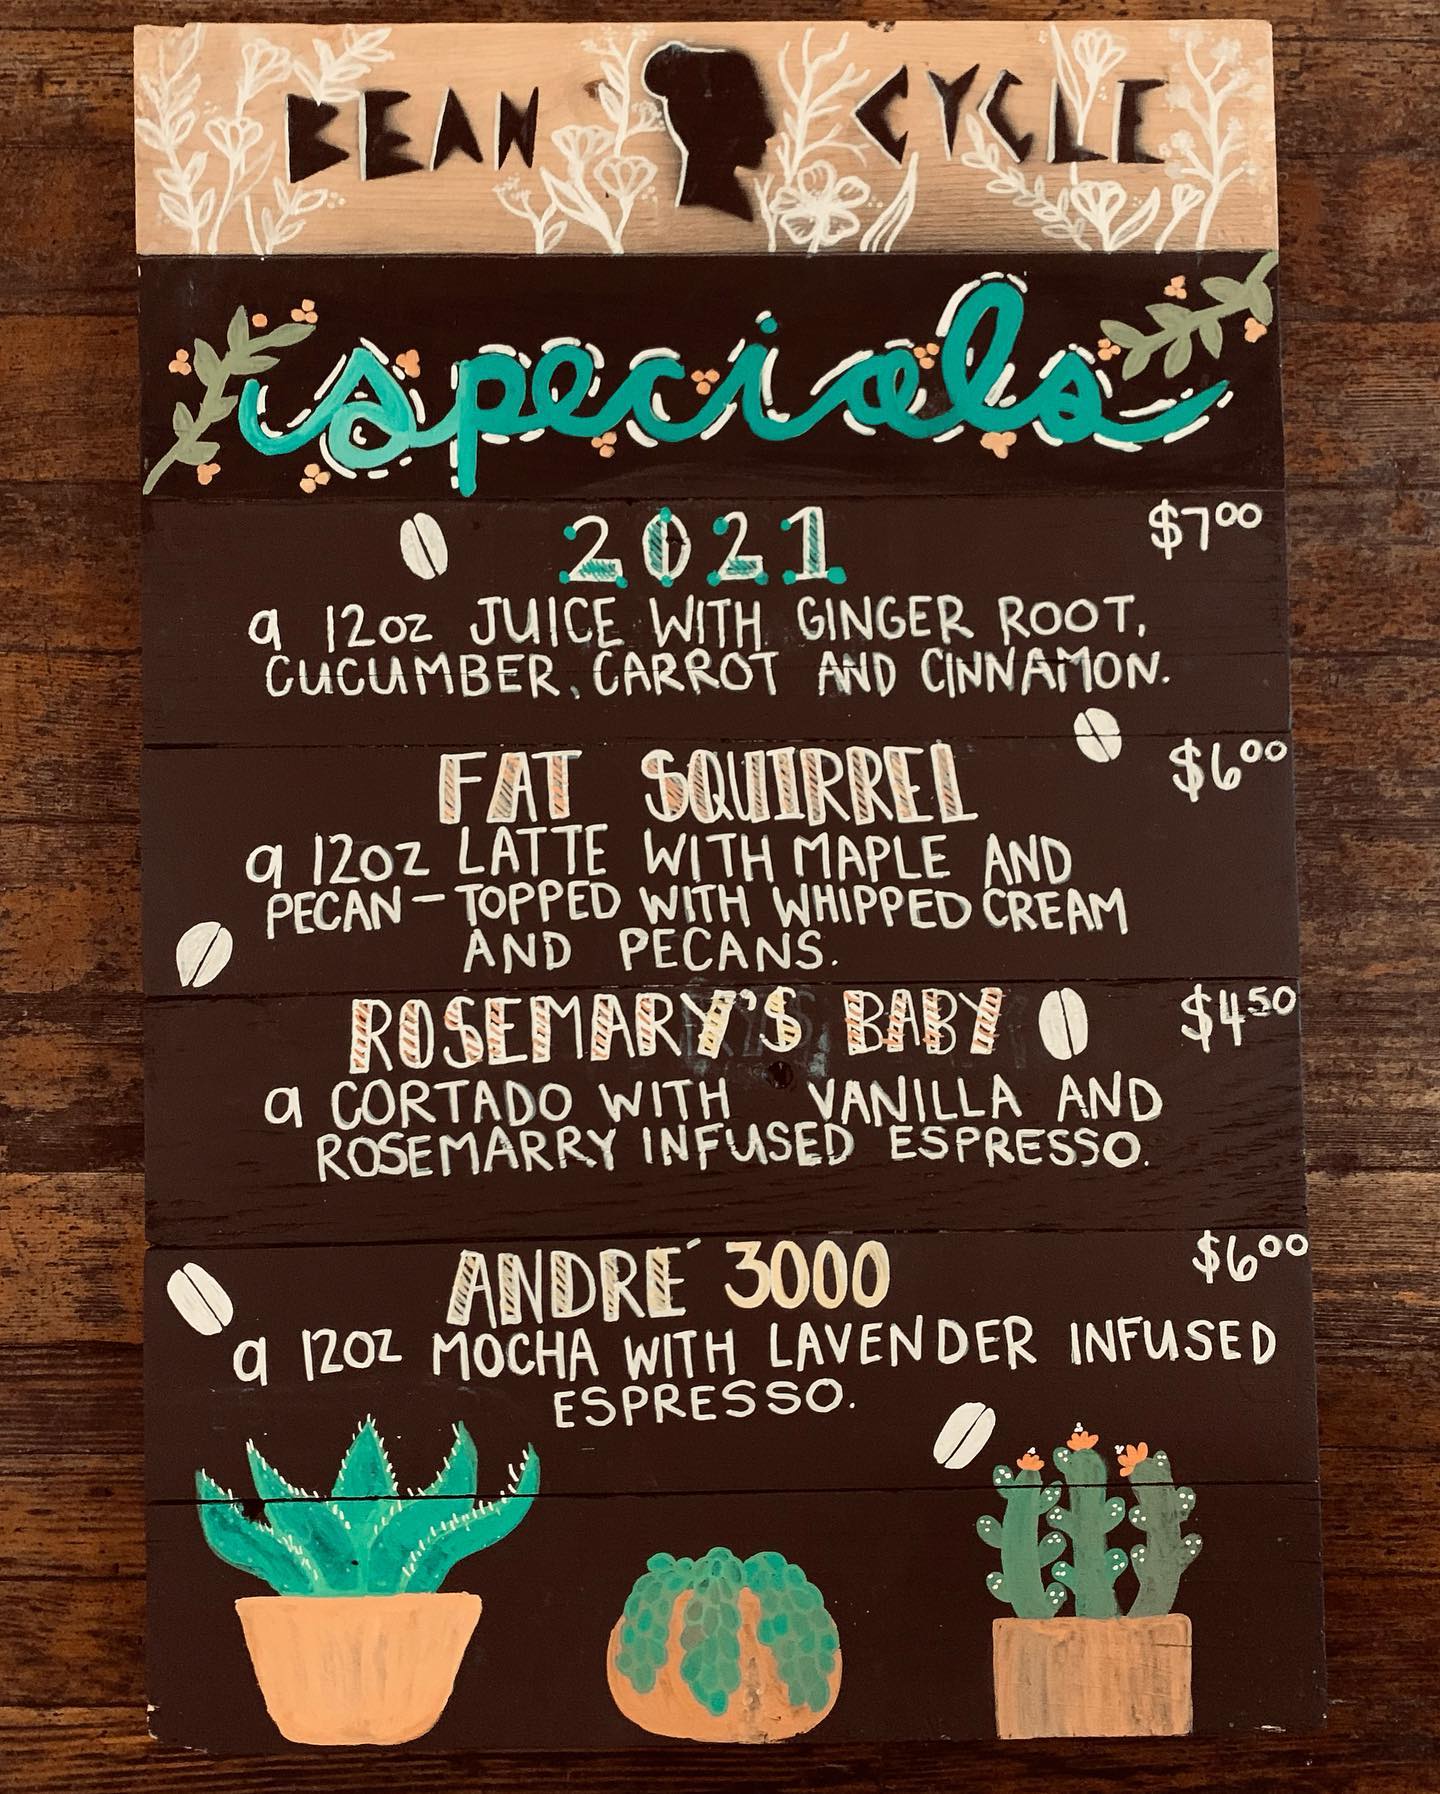 BEAN CYCLE
specials
2021 $7⁰⁰
a 12oz JUICE WITH GINGER ROOT,
CUCUMBER, CARROT AND CINNAMON.
FAT SQUIRREL $6⁰⁰
a 12oz LATTE WITH MAPLE AND
PECAN - TOPPED WITH WHIPPED CREAM
AND PECANS.
ROSEMARY'S BABY $4⁵⁰
a CORTADO WITH VANILLA AND
ROSEMARRY INFUSED ESPRESSO.
ANDRÉ 3000 $6⁰⁰
a 12oz MOCHA WITH LAVENDER INFUSED
ESPRESSO.